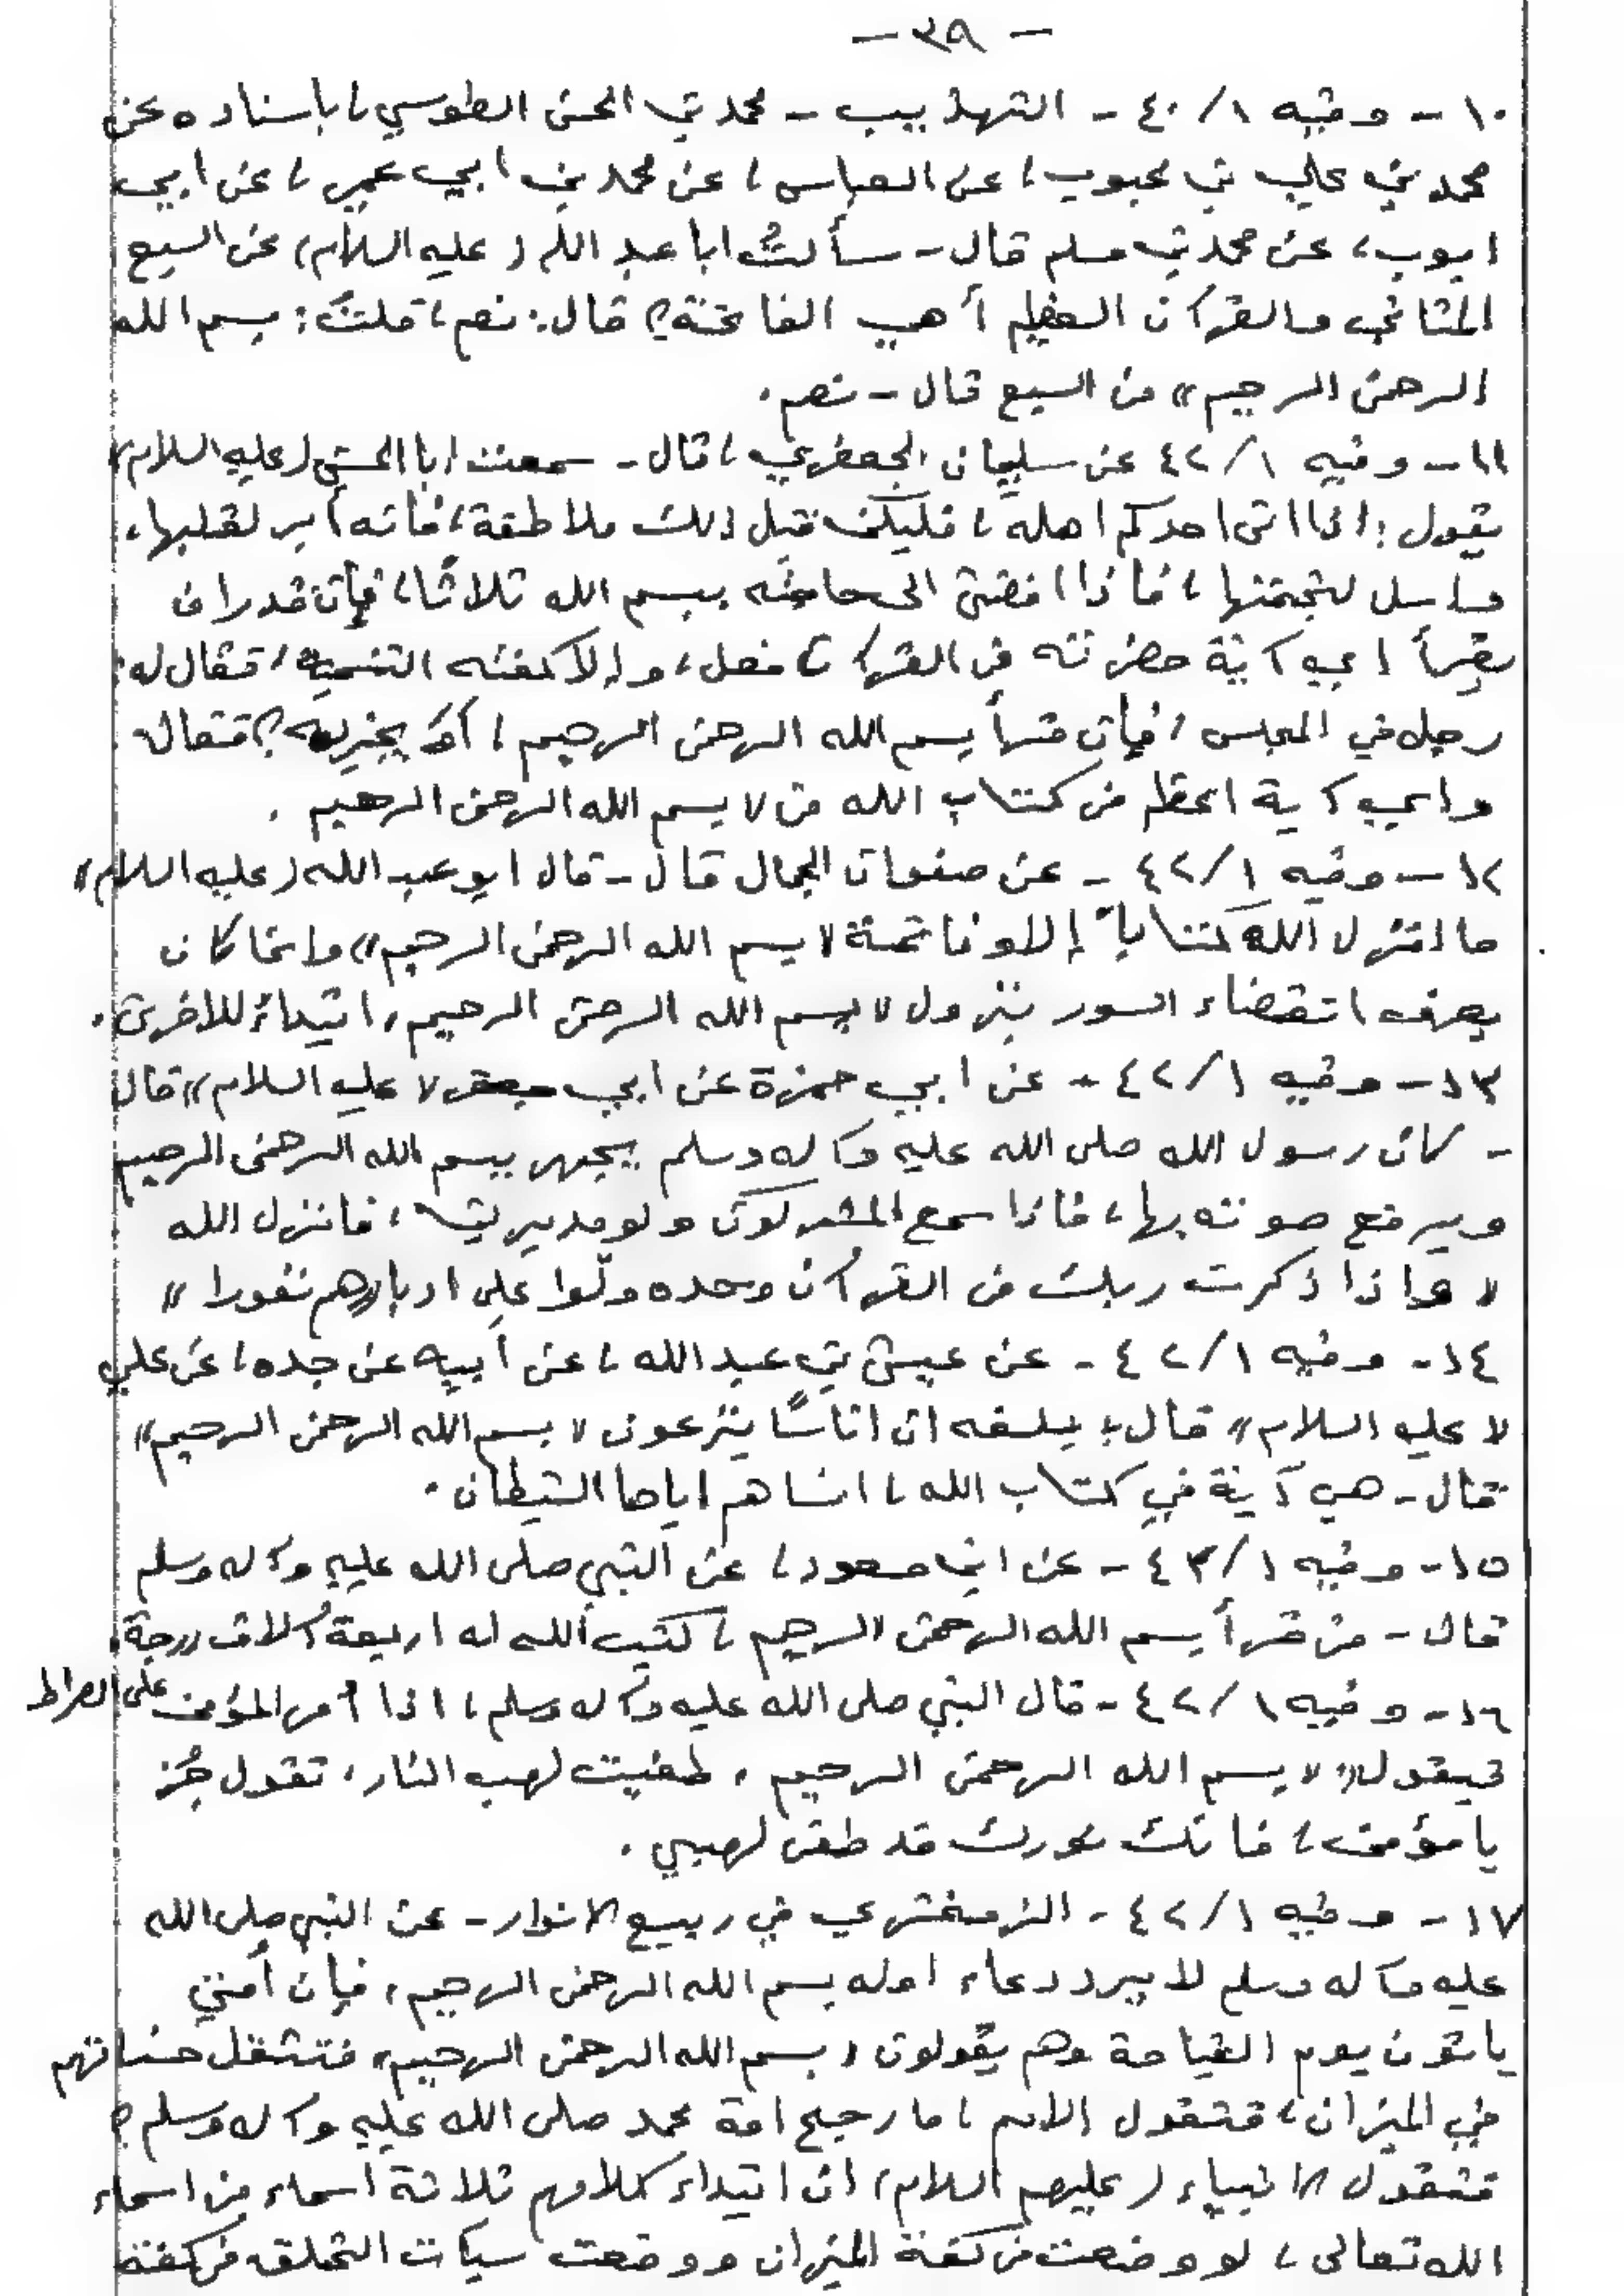 - ٣٩ -
١٠- وفيه ١/ ٤٠ - التهذيب - محمد بن الحسن الطوسي، باسناده عن
محمد بن علي بن محبوب، عن العباس، عن محمد بن ابي عمير، عن ابي
ايوب، عن محمد بن مسلم قال - سألتُ ابا عبد الله (عليه السلام) عن السبع
المثاني والقرآن العظيم أهي الفاتحة؟ قال: نعم، قلتُ: بسم الله
الرحمن الرحيم» من السبع قال - نعم.
١١- وفيه ١/ ٤٢ عن سليمان الجعفري، قال - سمعت ابا الحسن (عليه السلام)
يقول: اذا اتى احدكم اهله، فليكن قبل ذلك ملاطفة، فانه أبر لقلبها،
واسل لسخيمتها، فاذا افضى الى حاجته ببسم الله ثلاثًا، فإن قدر ان
يقرأ اي آية حضرته من القرآن فعل، وإلا كفته التسمية، فقال له:
رجل في المجلس، فإن قرأ بسم الله الرحمن الرحيم، أو يجزيه؟ فقال
واي آية اعظم من كتاب الله من لا بسم الله الرحمن الرحيم.
١٢- وفيه ١/ ٤٢ - عن صفوان الجمال قال - قال ابو عبد الله (عليه السلام»
ما انزل الله كتاباً إلا وفاتحته «بسم الله الرحمن الرحيم» وانما كان
يعرف انقضاء السور بنزول «بسم الله الرحمن الرحيم، ابتداءً للاخرى.
١٣- وفيه ١/ ٤٢ - عن ابي حمزة عن ابي جعفر «عليه السلام» قال
- كان رسول الله صلى الله عليه وآله وسلم يجهر ببسم الله الرحمن الرحيم
ويرفع صوته بها، فاذا سمع المشركون ولو مدبرين، فانزل الله
« واذا ذكرت ربك من القرآن وحده ولّوا على ادبارهم نفورا »
١٤- وفيه ١/ ٤٢ - عن عيسى بن عبد الله، عن أبيه عن جده، عن علي
« عليه السلام» قال: بلغه ان اناسًا ينزعون « بسم الله الرحمن الرحيم»
قال - هي آية في كتاب الله، انساهم اياها الشيطان.
١٥- وفيه ١/ ٤٣ - عن ابن مسعود، عن النبي صلى الله عليه وآله وسلم
قال - من قرأ بسم الله الرحمن الرحيم، كتب الله له اربعة آلاف درجة.
١٦- وفيه ١/ ٤٢ - قال النبي صلى الله عليه وآله وسلم، اذا مر المؤمن على الصراط
فيقول: « بسم الله الرحمن الرحيم، طفيت لهب النار، تقول جُز
يا مؤمن، فان نورك قد طفى لهبي.
١٧- وفيه ١/ ٤٢ - الزمخشري في ربيع الانوار - عن النبي صلى الله
عليه وآله وسلم لا يرد دعاء اوله بسم الله الرحمن الرحيم، فإن أمتي
يأتون يوم القيامة وهم يقولون «بسم الله الرحمن الرحيم» فتثقل حسناتهم
في الميزان، فتقول الامم، ما رجح امة محمد صلى الله عليه وآله وسلم؟
فتقول الانبياء (عليهم السلام) ان ابتداء كلامهم ثلاثة اسماء من اسماء
الله تعالى، لو وضعت في كفة الميزان ووضعت سيئات الخلق في كفة